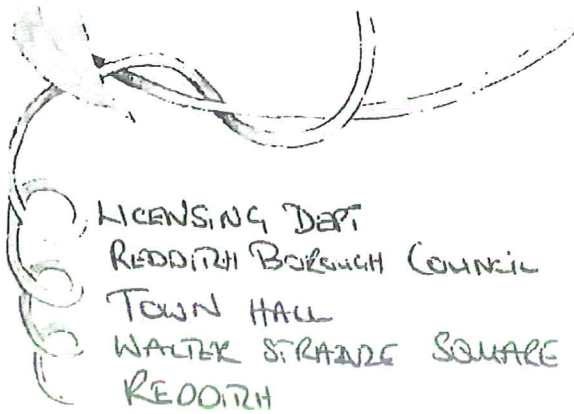 LICENSING DEPT
REDDITCH BOROUGH COUNCIL
TOWN HALL
WALTER STRANZE SQUARE
REDDITCH